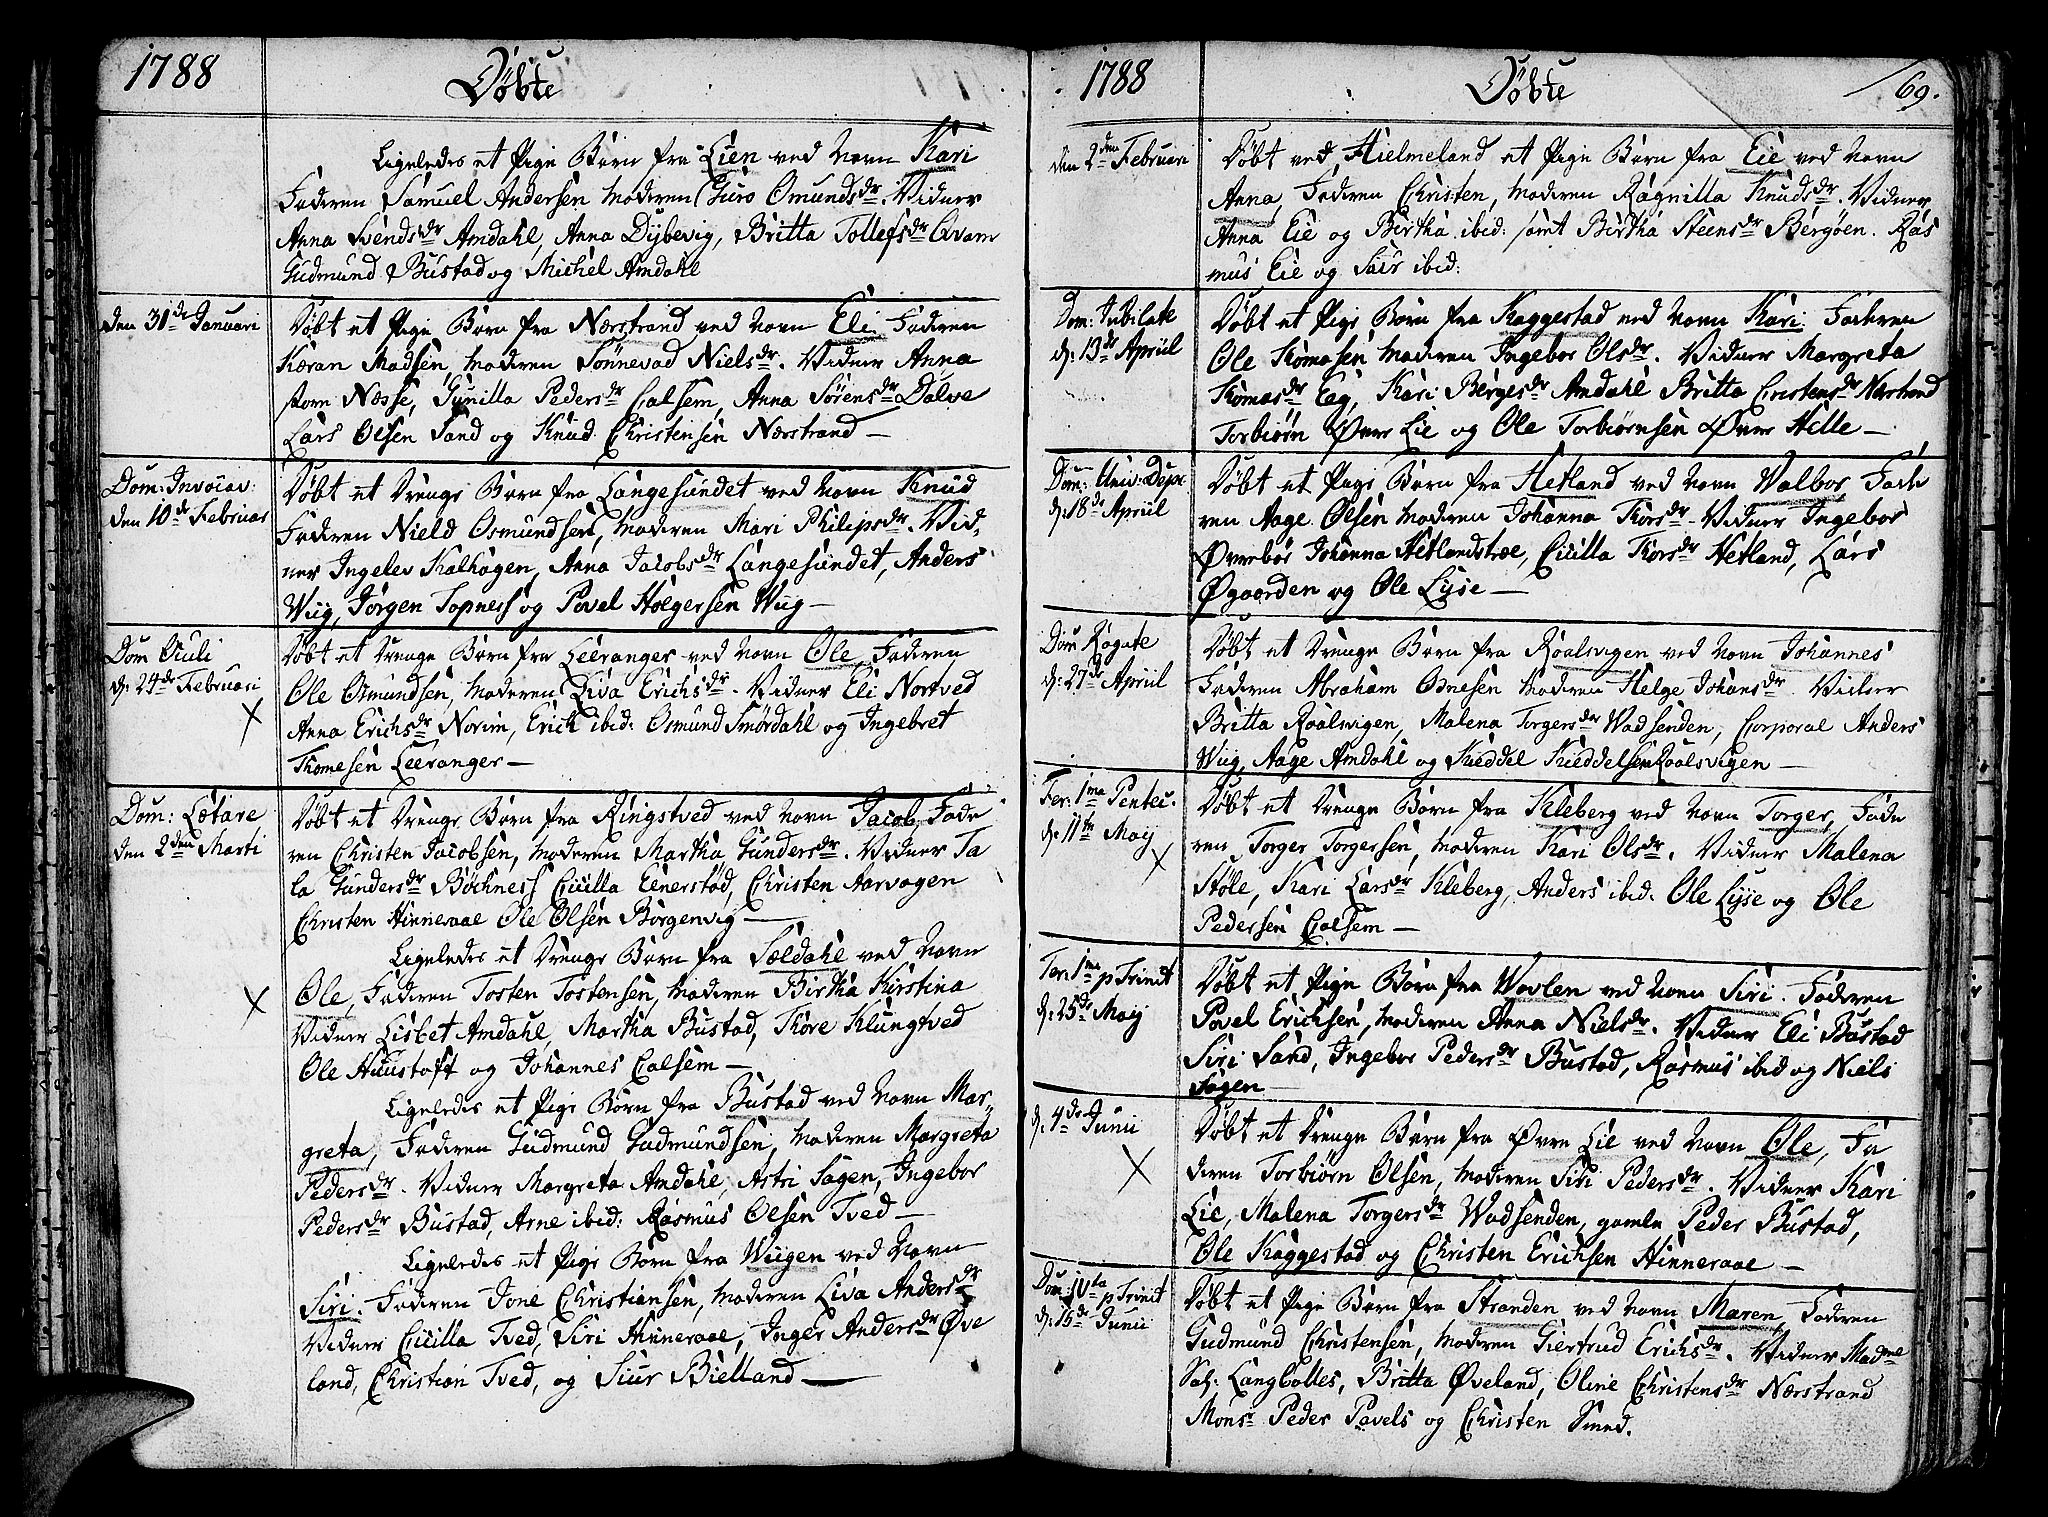 1788
Døbte
Ligeledes et Pige Børn fra Lien ved Navn Kari
Faderen Samuel Andersen Moderen Guro Omunds dr. Vidner
Anna Svends dr Amdahl, Anna Dybevig, Britta Tollefs dr Qvam
Gudmund Bustad og Michel Amdahl
den 31 de Januari
Døbt et Pige Børn fra Nærstrand ved Navn Eli Faderen
Kæran Madsen, Moderen Sønnevad Niels dr. Vidner Anna
storn Næsse, Gunilla Peders dr Calsem, Anna Sørens dr Dalve
Lars Olsen Sand og Knud Christensen Nærstrand —
Dom: Invocav:
den 10 de Februar
Døbt et Drenge Børn fra Langesundet ved Navn Knud
Faderen Nield Osmundsen, Moderen Mari Philips dr. Vid-
ner Ingelev Kalhagen, Anna Jacobs dr Langesundet, Anders
Wug, Jørgen Topness og Povel Holgersen Wug —
Dom Oculi
d: 24 de Februari
X
Døbt et Drenge Børn fra Leeranger ved Navn Ole, Faderen
Ole Osmundsen, Moderen Liva Erichs dr. Vidner Eli Nortved
Anna Erichs dr Norim, Erich ibid: Osmund Smørdahl og Ingebret
Thomesen Leeranger —
Dom: Lætare
den 2 den Marti
Døbt et Drenge Børn fra Ringstved ved Navn Jacob, Fade
ren Christen Jacobsen, Moderen Martha Gunders dr. Vidner Ta
la Gunders dr Bøchness Cicilla Einerstød, Christen Aarvagen
Christen Hinneraae Ole Olsen Børgenvig —
Ligeledes et Drenge Børn fra Sældahl ved Navn
X
Ole, Faderen Tosten Tostensen, Moderen Birtha Kirstina
Vidner Lisbet Amdahl, Martha Bustad, Tkore Klungtved
Ole Hauustoft og Johannes Calsem —
Ligeledes et Pige Børn fra Bustad ved Navn Mar-
greta, Faderen Gudmund Gudmundsen, Moderen Margreta
Peders dr. Vidner Margreta Amdahl, Astri Sagen, Ingebor
Peders dr Bustad, Arne ibid: Rasmus Olsen Tved —
Ligeledes et Pige Børn fra Wugen ved Navn
Siri. Faderen Jone Christiansen, Moderen Liva Anders dr
Vidner Cicilla Tved, Siri Hinneraae, Inger Anders dr Øve
land, Christian Tved, og Siur Bielland —
1788
Døbte
69.
den 2 den Februari
Døbt ved Hielmeland et Pige Børn fra Eie ved Navn
Anna, Faderen Christen, Moderen Ragnilla Knuds dr. Vidner
Anna Eie og Birtha ibid: samt Birtha Steens dr Bergøen. Ras
mus Eie og Siur ibid:
Dom: Jubilate
d: 13 de Apriil
Døbt et Pige Børn fra Kaggestad ved Navn Kari Faderen
Ole Thomasen, Moderen Ingebor Ols dr. Vidner Margreta
Thomas dr Eeg, Kari Berges dr Amdahl Britta Cristens dr Nærstrand
Torbiørn Øvre Lie og Ole Torbiørnsen Øvre Helle —
Dom: Univ: Depr.
d: 18 de Apriil
Døbt et Pige Børn fra Hetland ved Navn Walbor Fade
ren Aage Olsen Moderen Johanna Thors dr. Vidner Ingebor
Øverbør Johanna Hetlandstræe, Cicilla Thors dr Hetland, Lars
Øgaarden og Ole Lyse —
Dom Rogate
d: 27 de Apriil
Døbt et Drenge Børn fra Roalsvigen ved Navn Johannes
Faderen Abraham Omesen Moderen Helge Johans dr. Vidner
Britta Roalsvigen, Malena Torgers dr Wadsenden, Corporal Anders
Wug, Aage Amdahl og Kieddel Kieddelsen Roalsvigen —
Fer: 1 ma Pentec:
d: 11 te Maij
X
Døbt et Drenge Børn fra Kleberg ved Navn Torger, Fade
ren Torger Torgersen, Moderen Kari Ols dr. Vidner Malena
Støle, Kari Lars dr Kleberg, Anders ibid: Ole Lyse og Ole
Pedersen Calsem —
Fer: 1 ma p Trinit
d: 25 de Maij
Døbt et Pige Børn fra Wovlen ved Navn Siri. Faderen
Povel Erichsen, Moderen Anna Niels dr. Vidner Eli Bustad
Siri Sand, Ingebor Peders dr Bustad, Rasmus ibid og Niels
Sagen —
d: 4 de Junii
X
Døbt et Drenge Børn fra Øvre Lie ved Navn Ole, Fa
deren Torbiørn Olsen, Moderen Siri Peders dr. Vidner Kari
Lie, Malena Torgers dr Wadsenden, gamle Peder Bustad,
Ole Kaggestad og Christen Erichsen Hinneraae —
Dom: IV ta p Trinit
d: 15 de Junii
Døbt et Pige Børn fra Stranden ved Navn Maren, Faderen
Gudmund Christensen, Moderen Giertrud Erichs dr. Vidner Mad me
Sal: Langballes, Britta Øveland, Oline Christens dr Nærstrand
Mons r Peder Pavels og Christen Smed.